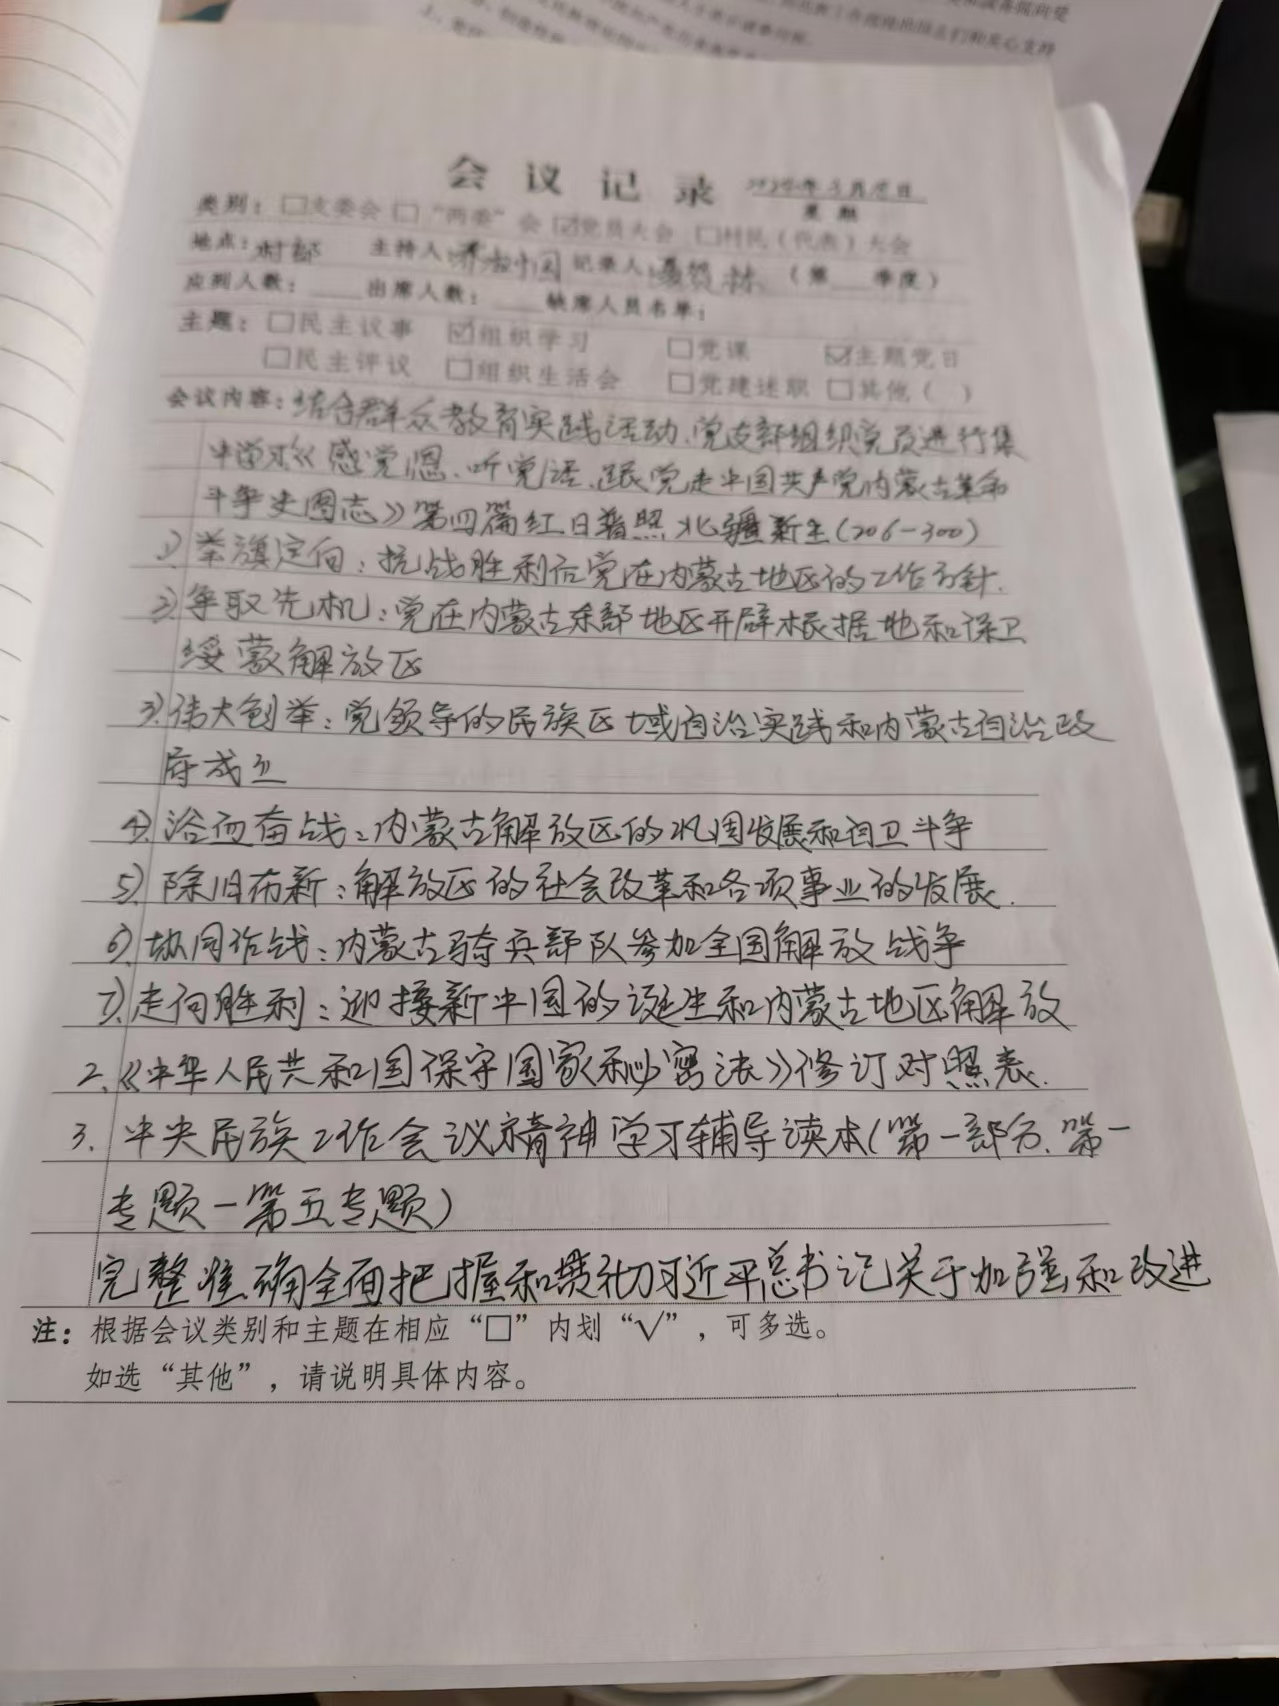 会议记录 2024年3月15日
星期
类别：□支委会 □“两委”会 ☑党员大会 □村民（代表）大会
地点：村部 主持人： 记录人： （第___季度）
应到人数：____ 出席人数：____ 缺席人员名单：
主题：□民主议事 ☑组织学习 □党课 ☑主题党日
□民主评议 □组织生活会 □党建述职 □其他（ ）
会议内容：结合群众教育实践活动、党支部组织党员进行集
中学习《感党恩、听党话、跟党走中国共产党内蒙古革命
斗争史图志》第四篇红日普照 北疆新生（206-300）
1）举旗定向：抗战胜利后党在内蒙古地区的工作方针.
2）争取先机：党在内蒙古东部地区开辟根据地和保卫
绥蒙解放区
3）伟大创举：党领导的民族区域自治实践和内蒙古自治政
府成立
4）浴血奋战：内蒙古解放区的巩固发展和自卫斗争
5）除旧布新：解放区的社会改革和各项事业的发展.
6）协同作战：内蒙古骑兵部队参加全国解放战争
7）走向胜利：迎接新中国的诞生和内蒙古地区解放
2、《中华人民共和国保守国家秘密法》修订对照表.
3. 中央民族工作会议精神学习辅导读本（第一部分、第一
专题－第五专题）
完整准确全面把握和贯彻习近平总书记关于加强和改进
注：根据会议类别和主题在相应“□”内划“√”，可多选。
如选“其他”，请说明具体内容。